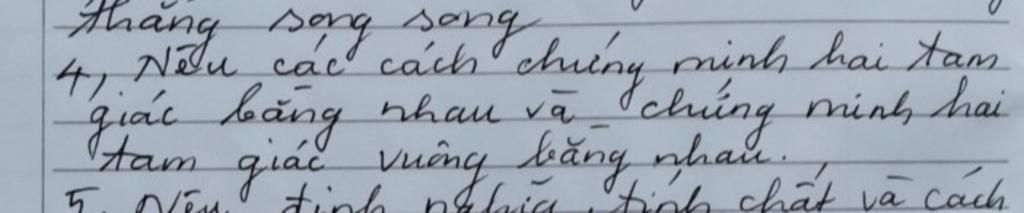 thẳng song song
4, Nêu các cách chứng minh hai tam
giác bằng nhau và chứng minh hai
tam giác vuông bằng nhau.
5, Nêu định nghĩa, tính chất và cách